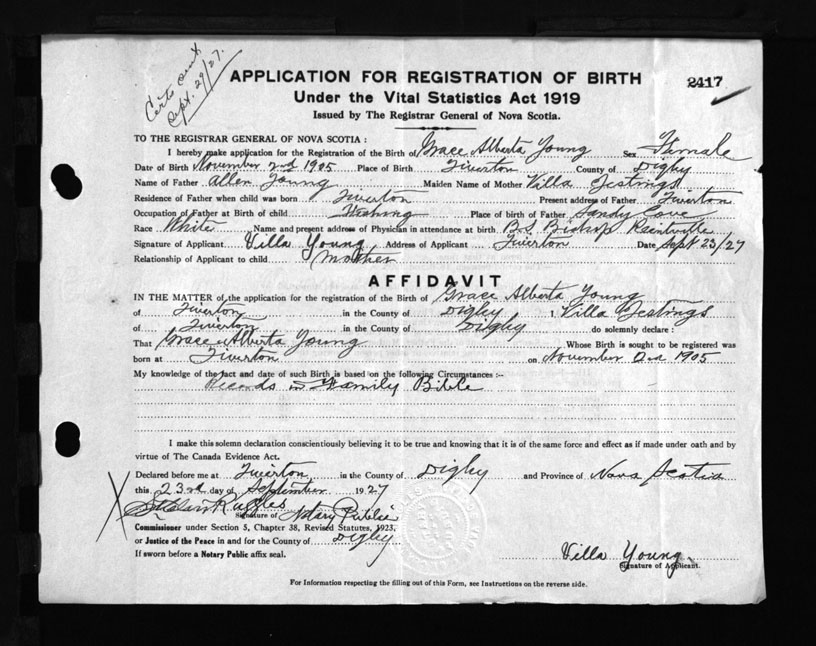 Sept. 29/27.
APPLICATION FOR REGISTRATION OF BIRTH 2417
Under the Vital Statistics Act 1919
Issued by The Registrar General of Nova Scotia.
TO THE REGISTRAR GENERAL OF NOVA SCOTIA :
I hereby make application for the Registration of the Birth of Grace Alberta Young Sex Female
Date of Birth November 2nd 1905 Place of Birth Tiverton County of Digby
Name of Father Allen Young Maiden Name of Mother Villa
Residence of Father when child was born Tiverton Present address of Father Tiverton
Occupation of Father at Birth of child Fishing Place of birth of Father Sandy Cove
Race White Name and present address of Physician in attendance at birth Bishop Kentville
Signature of Applicant Villa Young Address of Applicant Tiverton Date Sept 23/27
Relationship of Applicant to child Mother
AFFIDAVIT
IN THE MATTER of the application for the registration of the Birth of Grace Alberta Young
of Tiverton in the County of Digby I Villa
of Tiverton in the County of Digby do solemnly declare :
That Grace Alberta Young Whose Birth is sought to be registered was
born at Tiverton on November 1905
My knowledge of the fact and date of such Birth is based on the following Circumstances :-
Records in Family Bible
I make this solemn declaration conscientiously believing it to be true and knowing that it is of the same force and effect as if made under oath and by
virtue of The Canada Evidence Act.
Declared before me at Tiverton in the County of Digby and Province of Nova Scotia
this 23rd day of September 1927
Ruggles Signature of Notary Public
Commissioner under Section 5, Chapter 38, Revised Statutes, 1923,
or Justice of the Peace in and for the County of Digby
If sworn before a Notary Public affix seal.
Villa Young
Signature of Applicant.
For Information respecting the filling out of this Form, see Instructions on the reverse side.